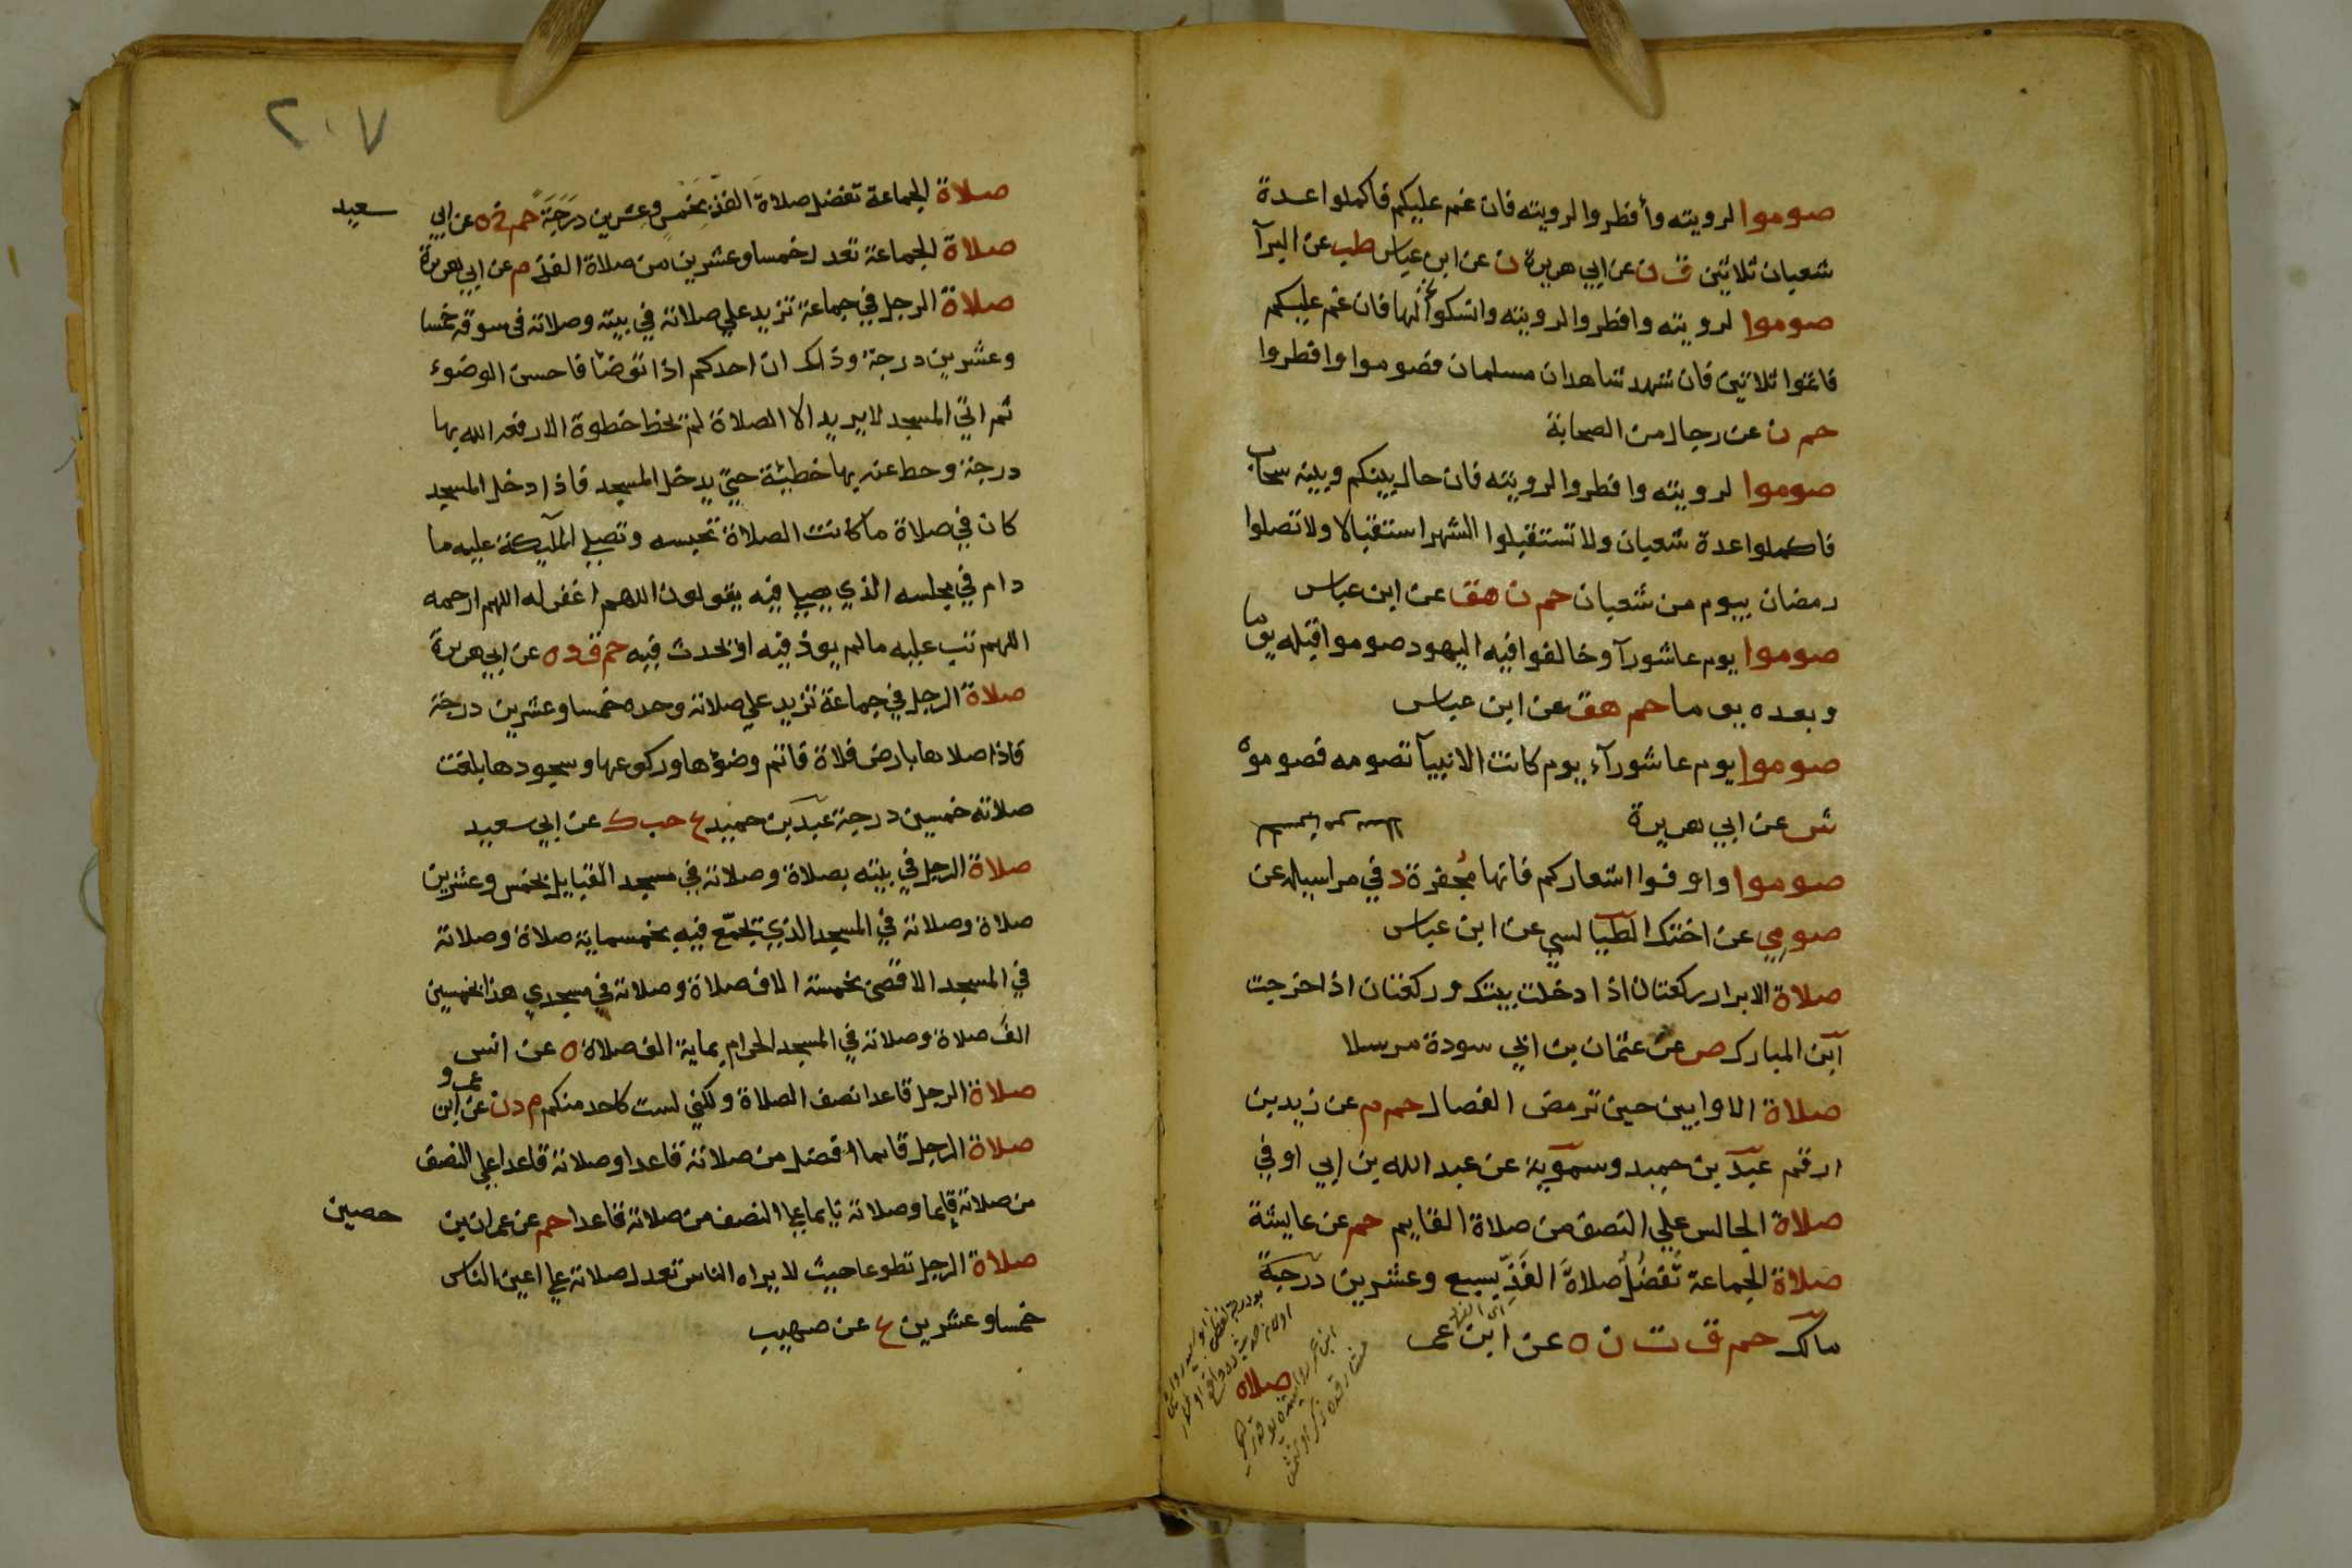 صوموا لرويته وأفطروا لرويته فان غم عليكم فاكملوا عدة
شعبان ثلاثين ق ن عن ابي هريرة ن عن ابن عباس طب عن البرآ
صوموا لرويته وافطروا لرويته وانسكوا لها فان غم عليكم
فاتموا ثلاثين فان شهد شاهدان مسلمان فصوموا وافطروا
حم ن عن رجال من الصحابة
صوموا لرويته وافطروا لرويته فان حال بينكم وبينه سحاب
فاكملوا عدة شعبان ولا تستقبلوا الشهر استقبالا ولا تصلوا
رمضان بيوم من شعبان حم ن هق عن ابن عباس
صوموا يوم عاشورآ وخالفوا فيه اليهود صوموا قبله يوما
وبعده يوما حم هق عن ابن عباس
صوموا يوم عاشورآء يوم كانت الانبيآ تصومه فصوموه
ش عن ابي هريرة
صوموا واوفوا اشعاركم فانها مجفرة د في مراسيله عن
صومي عن اختك الطيالسي عن ابن عباس
صلاة الابرار ركعتان اذا دخلت بيتك وركعتان اذا خرجت
ابن المبارك ص عن عثمان بن ابي سودة مرسلا
صلاة الاوابين حين ترمض الفصال حم م عن زيد بن
ارقم عبد بن حميد وسمويه عن عبد الله بن ابي اوفي
صلاة الجالس علي النصف من صلاة القايم حم عن عايشة
صلاة الجماعة تفضل صلاة الفذ بسبع وعشرين درجة
مالك حم ق ت ن ه عن ابن عمر
صلاه
٢٠٧
صلاة الجماعة تفضل صلاة الفذ بخمس وعشرين درجة حم خ ه عن ابي سعيد
صلاة الجماعة تعدل خمسا وعشرين من صلاة الفذ م عن ابي هريرة
صلاة الرجل في جماعة تزيد علي صلاته في بيته وصلاته في سوقه خمسا
وعشرين درجة وذلك ان احدكم اذا توضأ فاحسن الوضوء
ثم اتي المسجد لا يريد الا الصلاة لم يخط خطوة الا رفعه الله بها
درجة وحط عنه بها خطيئة حتي يدخل المسجد فاذا دخل المسجد
كان في صلاة ما كانت الصلاة تحبسه وتصلي الملآيكة عليه ما
دام في مجلسه الذي يصلي فيه يقولون اللهم اغفر له اللهم ارحمه
اللهم تب عليه ما لم يوذ فيه او يحدث فيه حم ق د ه عن ابي هريرة
صلاة الرجل في جماعة تزيد علي صلاته وحده خمسا وعشرين درجة
فاذا صلاها بارض فلاة فاتم وضؤها وركوعها وسجودها بلغت
صلاته خمسين درجة عبد بن حميد ع حب ك عن ابي سعيد
صلاة الرجل في بيته بصلاة وصلاته في مسجد القبايل بخمس وعشرين
صلاة وصلاته في المسجد الذي يجمع فيه بخمسماية صلاة وصلاته
في المسجد الاقصى بخمسة الاف صلاة وصلاته في مسجدي هذا بخمسين
الف صلاة وصلاته في المسجد الحرام بماية الف صلاة ه عن انس
صلاة الرجل قاعدا نصف الصلاة ولكني لست كاحد منكم م د ن عن ابن عمرو
صلاة الرجل قايما افضل من صلاته قاعدا وصلاته قاعدا علي النصف
من صلاته قايما وصلاته نايما علي النصف من صلاته قاعدا حم عن عمران بن حصين
صلاة الرجل تطوعا حيث لا يراه الناس تعدل صلاته علي اعين الناس
خمسا وعشرين ع عن صهيب